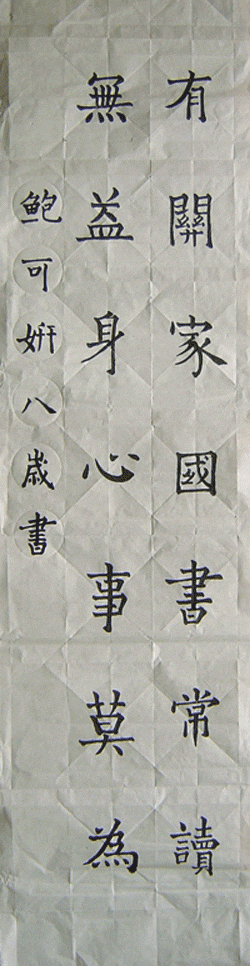 有關家國書常讀
無益身心事莫為
鮑可妍八歲書